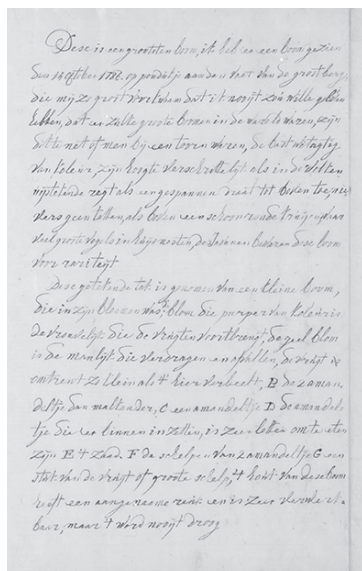 Dese is een grooten boom, ik heb er een boom gezien
den 14 October op pondatje aan den voet van de groot berg,
die mij zo groot voorkwam dat ik nooijt zou wille gelooven
hebben, dat er zulke groote boomen in de warelt waren, zijn
dikte net of men bij een toren waren, de bast
van koleur, zijn hoogte verschrikkelijk als in de wolken
regt als een gespannen tot boven toe,
geen takken, als boven een schoon ronde kruijn, daar
veel groote vogels in haar nesten, de Javanen dese boom
voor rariteijt
Dese getekende tak is genomen van een kleine boom,
die in zijn bloemen was; blom die purper van koleur is
de vrouwelijk die de vrugten voortbrengt, de geel blom
is de manlijk die verdragen en de vrugt is
omtrent zo klein als 't hier verbeelt, B de aman-
deltje dan malkander, C een amandeltje D de amandel-
tje die er binnen in zitten, is zeer lekker om te eten
zijn E 't zaed. F de schelpen van 't amandeltje G een
stuk van de vrugt of groote schelp, 't hout van dese boom
heeft een aangenaame reuk en is zeer
baar, maar 't word nooijt droog